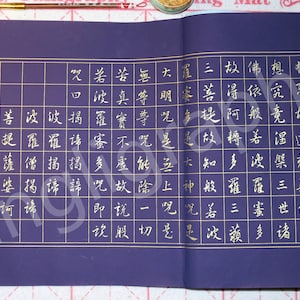 想究竟涅槃三世諸
佛依般若波羅蜜多
故得阿耨多羅三藐
三菩提故知般若波
羅蜜多是大神咒是
大明咒是無上咒是
無等等咒能除一切
苦真實不虛故說般
若波羅蜜多咒即說
咒曰揭諦揭諦
波羅揭諦
波羅僧揭諦
菩提薩婆訶